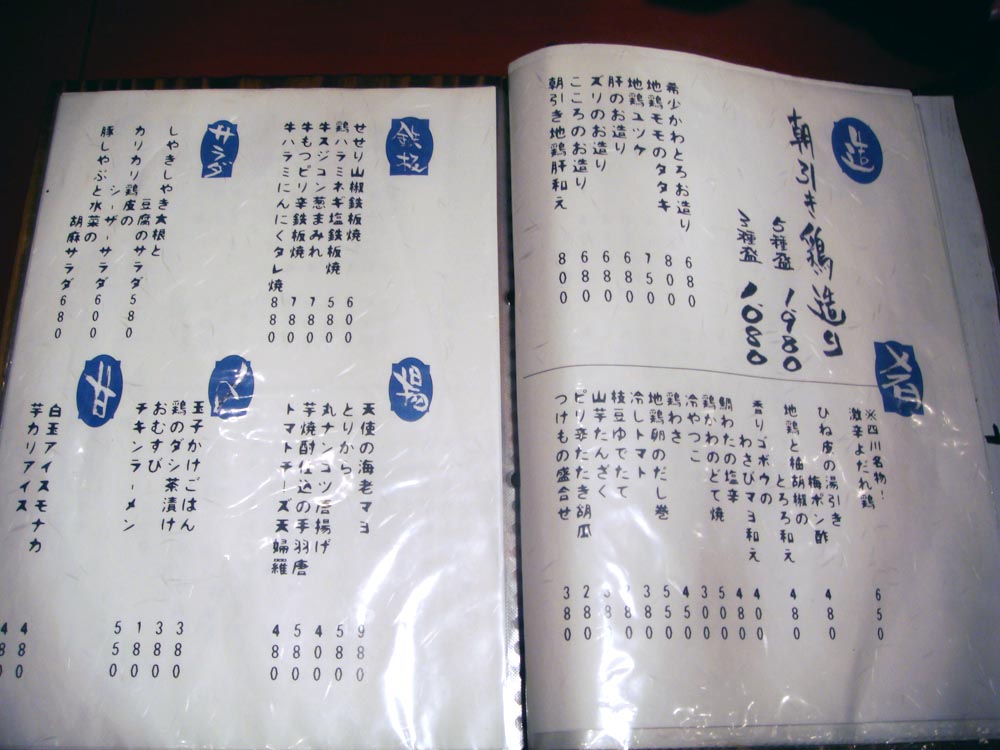 造
朝引き鶏造り
5種盛 1,980
3種盛 1,080
希少かわとろお造り 680
地鶏モモのタタキ 800
地鶏ユッケ 750
肝のお造り 680
ズリのお造り 680
こころのお造り 680
朝引き地鶏肝和え 800
肴
※四川名物!
激辛よだれ鶏 650
ひね皮の湯引き
梅ポン酢 480
地鶏と柚胡椒の
とろろ和え 480
香りゴボウの
わさびマヨ和え 400
鯛わたの塩辛 480
鶏かわのどて焼 500
冷やっこ 300
鶏わさ 450
地鶏卵のだし巻 550
冷しトマト 380
枝豆ゆでたて
山芋たんざく
ピリ辛たたき胡瓜 280
つけもの盛合せ 380
鉄板
せせり山椒鉄板焼 600
鶏ハラミネギ塩鉄板焼 580
牛スジコン葱まみれ 780
牛もつピリ辛鉄板焼 780
牛ハラミにんにくタレ焼 880
サラダ
しゃきしゃき大根と
豆腐のサラダ 580
カリカリ鶏皮の
シーザーサラダ 600
豚しゃぶと水菜の
胡麻サラダ 680
揚
天使の海老マヨ 980
とりから 580
丸ナンコツ唐揚げ 400
芋焼酎仕込の手羽唐 580
トマトチーズ天婦羅 480
〆
玉子かけごはん 380
鶏のダシ茶漬け 380
おむすび 180
チキンラーメン 550
甘
白玉アイスモナカ 480
芋カリアイス 480